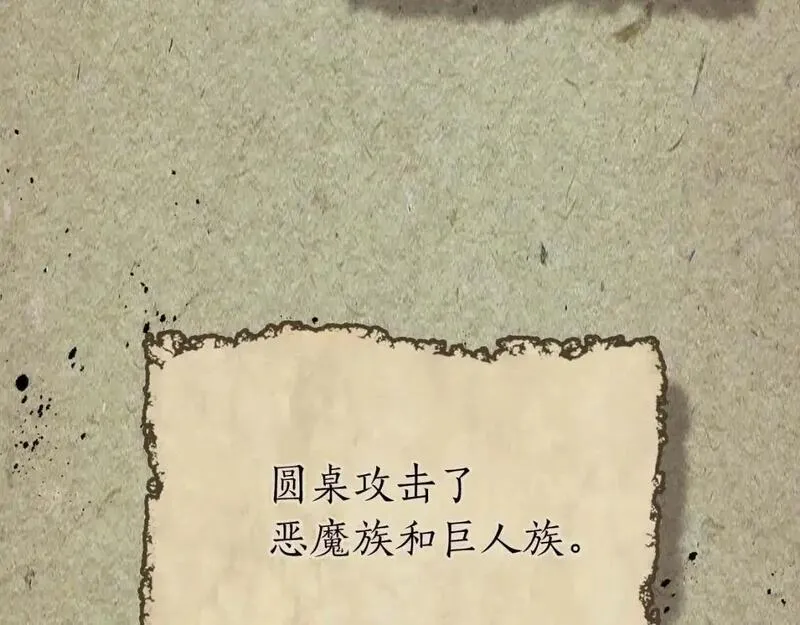 圆桌攻击了
恶魔族和巨人族。